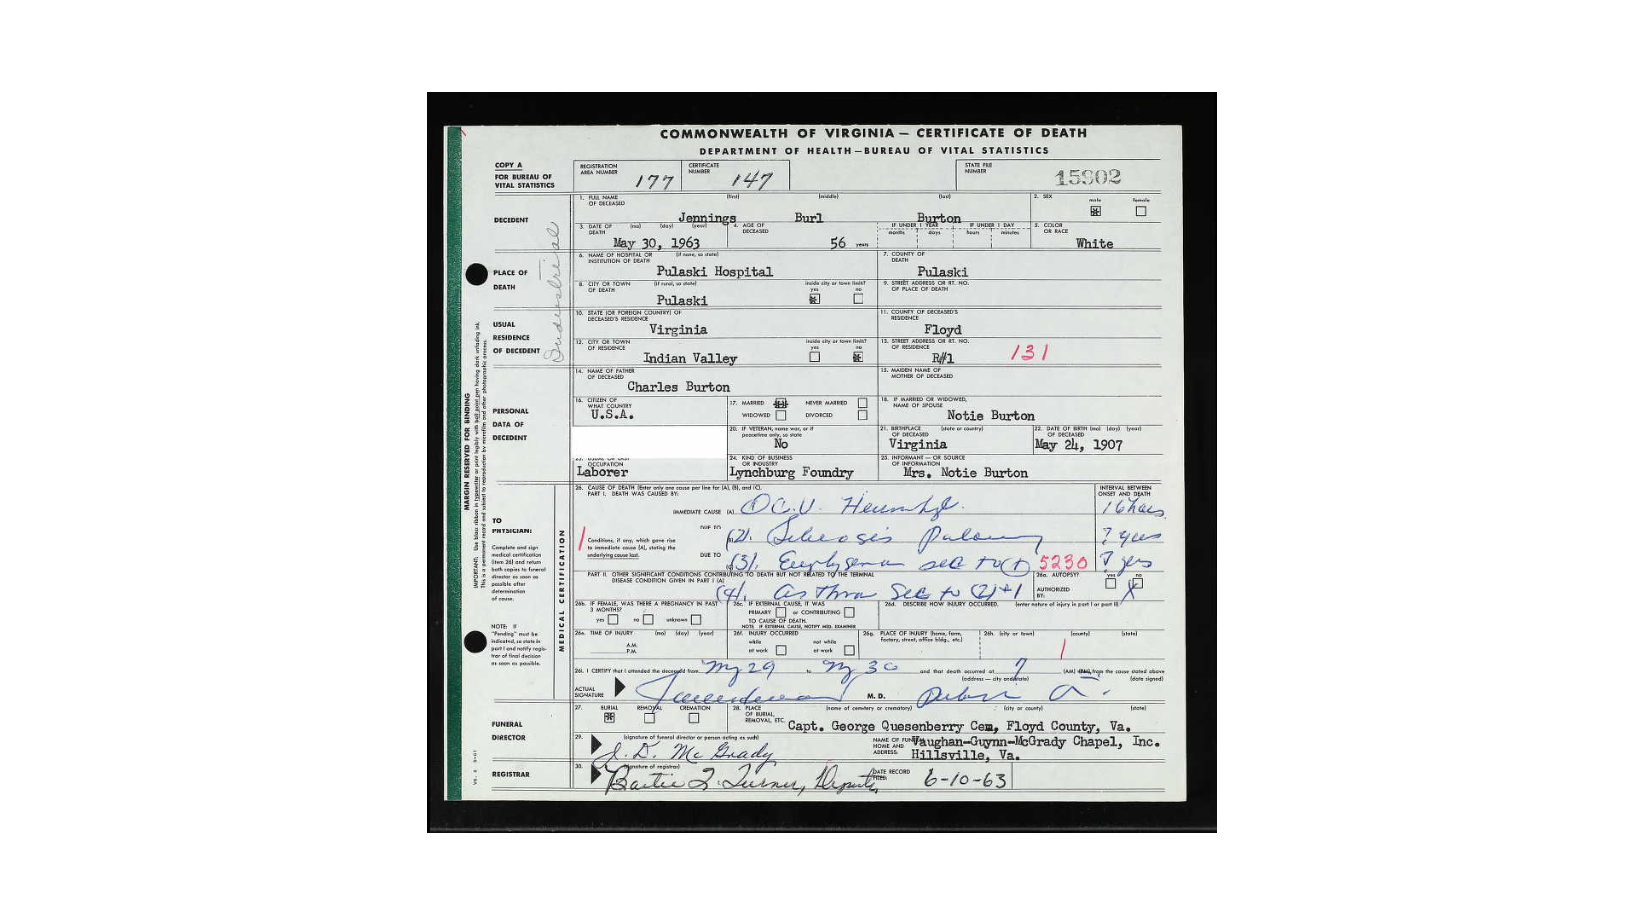 COMMONWEALTH OF VIRGINIA — CERTIFICATE OF DEATH
DEPARTMENT OF HEALTH—BUREAU OF VITAL STATISTICS
COPY A
FOR BUREAU OF
VITAL STATISTICS
REGISTRATION AREA NUMBER 177
CERTIFICATE NUMBER 147
STATE FILE NUMBER 15902
DECEDENT
1. FULL NAME OF DECEASED (first) (middle) (last)
Jennings Burl Burton
2. SEX male female
3. DATE OF DEATH (mo) (day) (year) May 30, 1963
4. AGE OF DECEASED 56 years
IF UNDER 1 YEAR months days IF UNDER 1 DAY hours minutes
5. COLOR OR RACE White
Industrial
PLACE OF
DEATH
6. NAME OF HOSPITAL OR INSTITUTION OF DEATH (if none, so state) Pulaski Hospital
7. COUNTY OF DEATH Pulaski
8. CITY OR TOWN OF DEATH (if rural, so state) Pulaski inside city or town limits? yes no
9. STREET ADDRESS OR RT. NO. OF PLACE OF DEATH
USUAL
RESIDENCE
OF DECEDENT
10. STATE (OR FOREIGN COUNTRY) OF DECEASED'S RESIDENCE Virginia
11. COUNTY OF DECEASED'S RESIDENCE Floyd
12. CITY OR TOWN OF RESIDENCE Indian Valley inside city or town limits? yes no
13. STREET ADDRESS OR RT. NO. OF RESIDENCE R#1 131
PERSONAL
DATA OF
DECEDENT
14. NAME OF FATHER OF DECEASED Charles Burton
15. MAIDEN NAME OF MOTHER OF DECEASED
16. CITIZEN OF WHAT COUNTRY U.S.A.
17. MARRIED NEVER MARRIED WIDOWED DIVORCED
18. IF MARRIED OR WIDOWED, NAME OF SPOUSE Notie Burton
20. IF VETERAN, name war, or if peacetime only, so state No
21. BIRTHPLACE OF DECEASED (state or country) Virginia
22. DATE OF BIRTH OF DECEASED (mo) (day) (year) May 24, 1907
OCCUPATION Laborer
24. KIND OF BUSINESS OR INDUSTRY Lynchburg Foundry
25. INFORMANT — OR SOURCE OF INFORMATION Mrs. Notie Burton
MARGIN RESERVED FOR BINDING
TO
PHYSICIAN:
Complete and sign
medical certification
(item 26) and return
both copies to funeral
director as soon as
possible after
determination
of cause.
NOTE: If
"Pending" must be
indicated, so state in
part I and notify regis-
trar of final decision
as soon as possible.
MEDICAL CERTIFICATION
26. CAUSE OF DEATH (Enter only one cause per line for (A), (B), and (C).
PART I. DEATH WAS CAUSED BY:
INTERVAL BETWEEN ONSET AND DEATH
IMMEDIATE CAUSE (A)
Conditions, if any, which gave rise
to immediate cause (A), stating the
underlying cause last.
DUE TO (2).
DUE TO (3). Emphysema sec to (1) 5230 ? yrs
PART II. OTHER SIGNIFICANT CONDITIONS CONTRIBUTING TO DEATH BUT NOT RELATED TO THE TERMINAL
DISEASE CONDITION GIVEN IN PART I (A)
(4). Asthma Sec to (2)+1
26a. AUTOPSY? yes no
AUTHORIZED BY: X
26b. IF FEMALE, WAS THERE A PREGNANCY IN PAST 3 MONTHS? yes no unknown
26c. IF EXTERNAL CAUSE, IT WAS PRIMARY or CONTRIBUTING TO CAUSE OF DEATH.
NOTE: IF EXTERNAL CAUSE, NOTIFY MED. EXAMINER
26d. DESCRIBE HOW INJURY OCCURRED. (enter nature of injury in part I or part II)
26e. TIME OF INJURY (mo) (day) (year) A.M. P.M.
26f. INJURY OCCURRED while at work not while at work
26g. PLACE OF INJURY (home, farm, factory, street, office bldg., etc.)
26h. (city or town) (county) (state)
26i. I CERTIFY that I attended the deceased from My 29 to My 30 and that death occurred at 7 (AM) (PM) from the cause stated above
(address — city and state) (date signed)
ACTUAL SIGNATURE M. D.
FUNERAL
DIRECTOR
27. BURIAL REMOVAL CREMATION
28. PLACE OF BURIAL, REMOVAL, ETC. (name of cemetery or crematory) (city or county) (state)
Capt. George Quesenberry Cem, Floyd County, Va.
29. (signature of funeral director or person acting as such) J. D. McGrady
NAME OF FUNERAL HOME AND ADDRESS: Vaughan-Guynn-McGrady Chapel, Inc.
Hillsville, Va.
REGISTRAR
30. (signature of registrar) Turner, Deputy
DATE RECORD FILED: 6-10-63